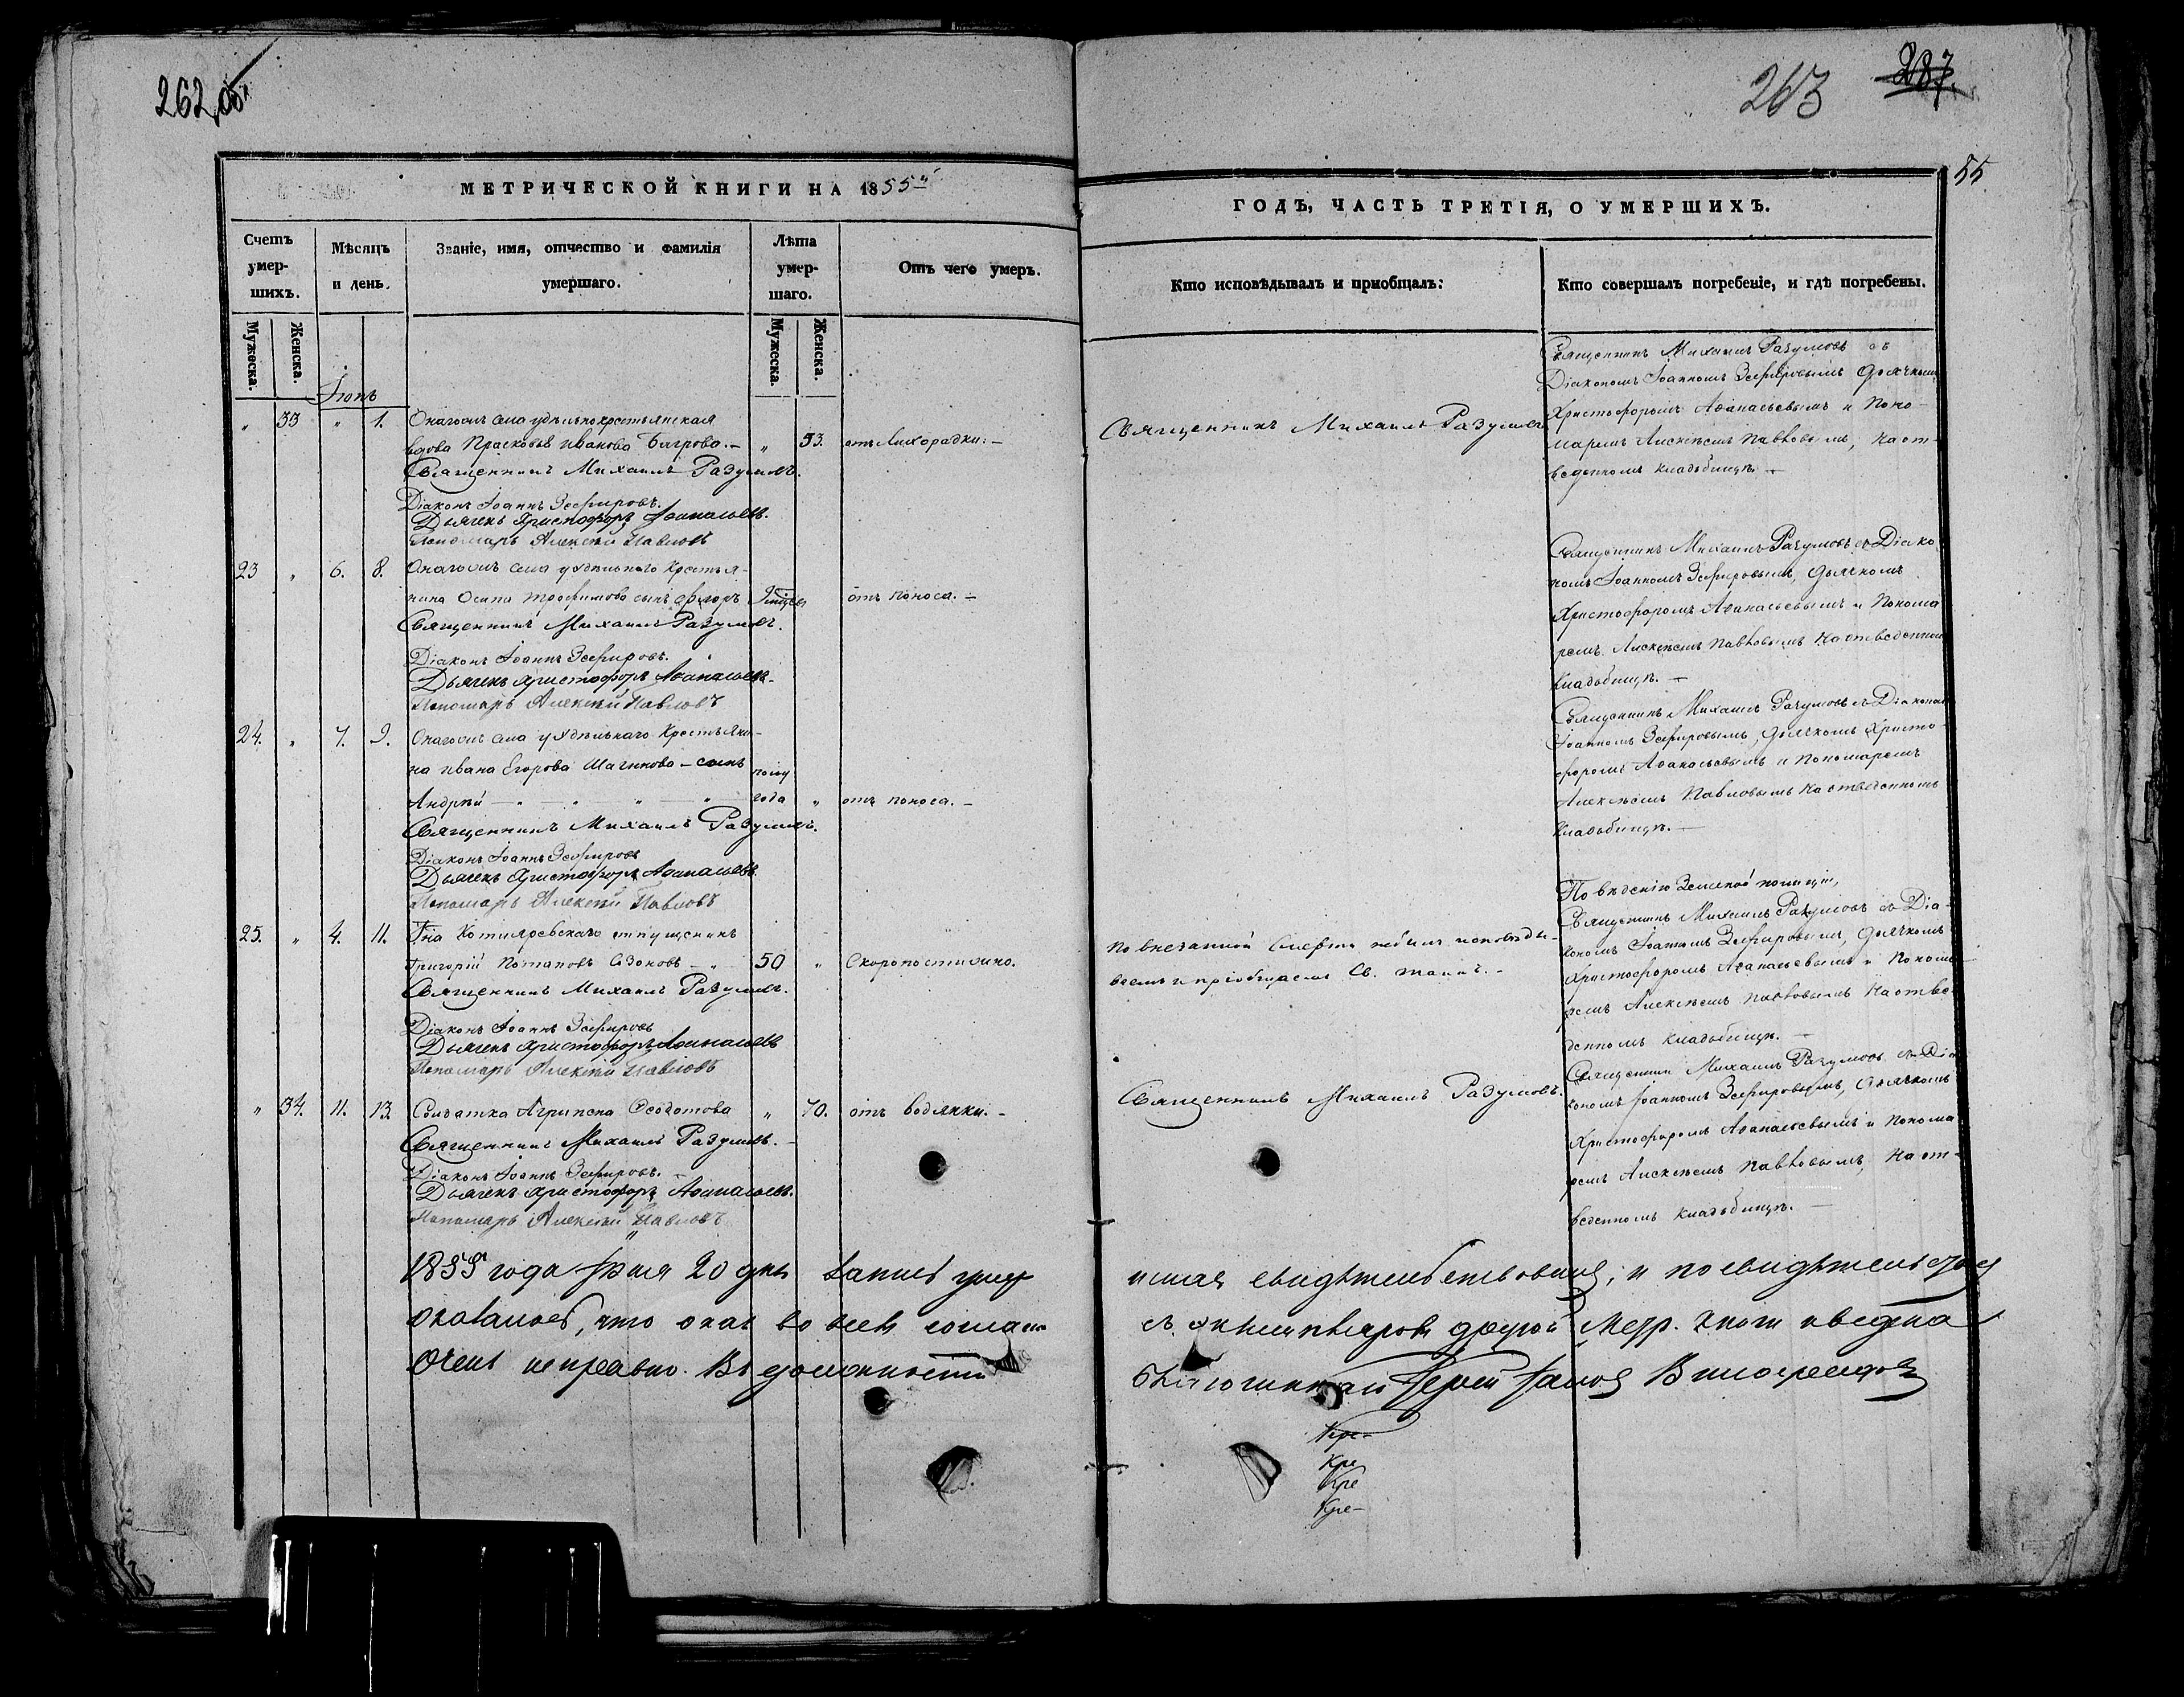 262
263
287.
55
МЕТРИЧЕСКОЙ КНИГИ НА 1855й
ГОДЪ, ЧАСТЬ ТРЕТІЯ, О УМЕРШИХЪ.
Счетъ умер-
шихъ.
Мѣсяцъ
и день.
Званіе, имя, отчество и фамилія
умершаго.
Лѣта
умер-
шаго.
Отъ чего умеръ.
Кто исповѣдывалъ и пріобщалъ:
Кто совершалъ погребеніе, и гдѣ погребены.
Мужеска.
Женска.
Мужеска.
Женска.
Іюнь
„ 33 „ 1. Онагожъ села удѣльнокрестьянская
вдова Прасковья Иванова Багрова. — „ 53. отъ лихорадки. —
Священникъ Михаилъ Разумовъ.
Діаконъ Іоаннъ Зефировъ.
Дьячекъ Христофоръ Аѳанасьевъ.
Пономарь Алексѣй Павловъ
Священникъ Михаилъ Разумовъ
Священникъ Михаилъ Разумовъ съ
Діакономъ Іоанномъ Зефировымъ Дьячкомъ
Христофоромъ Аѳанасьевымъ и Поно-
маремъ Алексѣемъ Павловымъ, на от-
веденномъ кладбищѣ. —
23 „ 6. 8. Онагожъ села удѣльнаго крестья-
нина Осипа Трофимова сынъ Флоръ отъ поноса. —
Священникъ Михаилъ Разумовъ.
Діаконъ Іоаннъ Зефировъ.
Дьячекъ Христофоръ Аѳанасьевъ.
Пономарь Алексѣй Павловъ
Священникъ Михаилъ Разумовъ съ Діако
номъ Іоанномъ Зефировымъ, Дьячкомъ
Христофоромъ Аѳанасьевымъ и Понома
ремъ Алексѣемъ Павловымъ на отведенномъ
кладбищѣ. —
24. „ 7. 9. Онагожъ села удѣльнаго крестьяни-
на Ивана Егорова — сынъ полу
Андрей — „ — „ — года „ отъ поноса. —
Священникъ Михаилъ Разумовъ.
Діаконъ Іоаннъ Зефировъ
Дьячекъ Христофоръ Аѳанасьевъ
Пономарь Алексѣй Павловъ
Священникъ Михаилъ Разумовъ съ Діакономъ
Іоанномъ Зефировымъ, Дьячкомъ Христо-
форомъ Аѳанасьевымъ и Пономаремъ
Алексѣемъ Павловымъ на отведенномъ
кладбищѣ. —
25. „ 4. 11. Гна отпущеникъ
Григорій Потаповъ Сазоновъ — „ 50 „ Скоропостижно.
Священникъ Михаилъ Разумовъ.
Діаконъ Іоаннъ Зефировъ
Дьячекъ Христофоръ Аѳанасьевъ
Пономарь Алексѣй Павловъ
По внезапной смерти небылъ исповѣды-
ваемъ и пріобщаемъ Св. таинъ. —
По вѣденію Земской полиціи,
Священникъ Михаилъ Разумовъ съ Діа-
кономъ Іоанномъ Зефировымъ, Дьячкомъ
Христофоромъ Аѳанасьевымъ и Понома
ремъ Алексѣемъ Павловымъ на отве-
денномъ кладбищѣ. —
„ 34. 11. 13. Солдатка Агрипена Ѳедотова „ 70. отъ водянки. —
Священникъ Михаилъ Разумовъ. —
Діаконъ Іоаннъ Зефировъ. —
Дьячекъ Христофоръ Аѳанасьевъ.
Пономарь Алексѣй Павловъ
Священникъ Михаилъ Разумовъ.
Священникъ Михаилъ Разумовъ съ Діа
кономъ Іоанномъ Зефировымъ, Дьячкомъ
Христофоромъ Аѳанасьевымъ и Понома
ремъ Алексѣемъ Павловымъ, на от-
веденномъ кладбищѣ. —
1855 года Іюля 20 дня свидѣтельствовалъ, и по свидѣтельству
оказалось, что оная во всемъ съ экземпляромъ другой Метр. книги и ведена
очень неправно. Въ должности Іерей
Кре-
Кре
Кре
Кре-